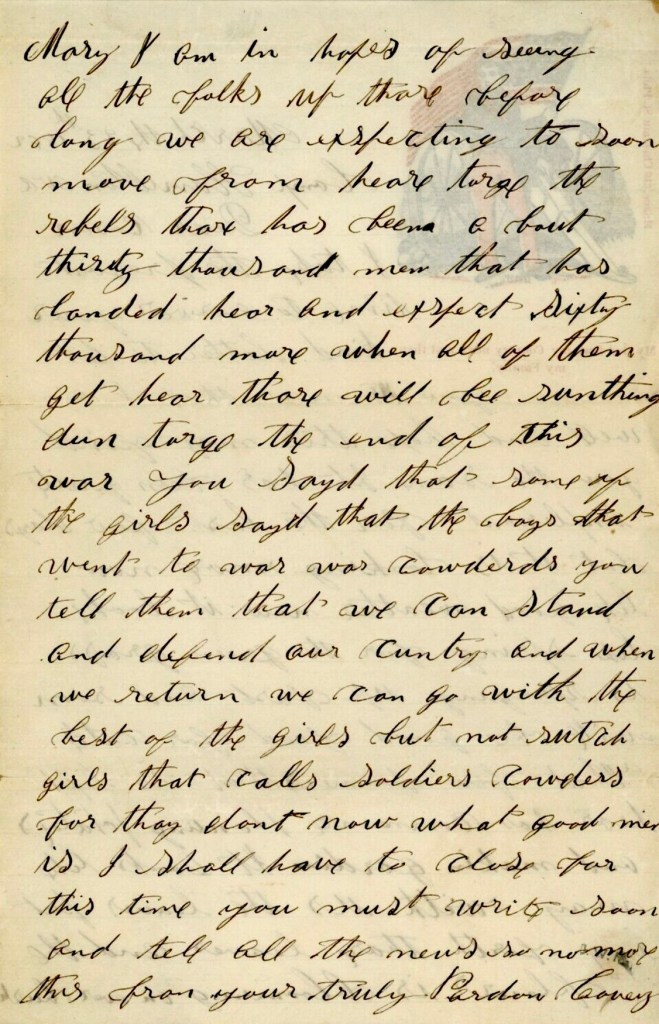 Mary I am in hopes of seeing
all the folks up thare before
long we are exspecting to soon
move from heare torge the
rebels thare has beena a bout
thirdty thousand men that has
landed hear and exspect sixty
thousand more when all of them
get hear thare will bee sunthing
dun torge the end of this
war you sayd that some of
the girls sayd that the boys that
went to war war cowderds you
tell them that we can stand
and defend our cuntry and when
we return we can go with the
best of the girls but not sutch
girls that calls soldiers cowders
for thay dont now what good men
is I shall have to close for
this time you must write soon
and tell all the news so no more
this from your truly Pardon